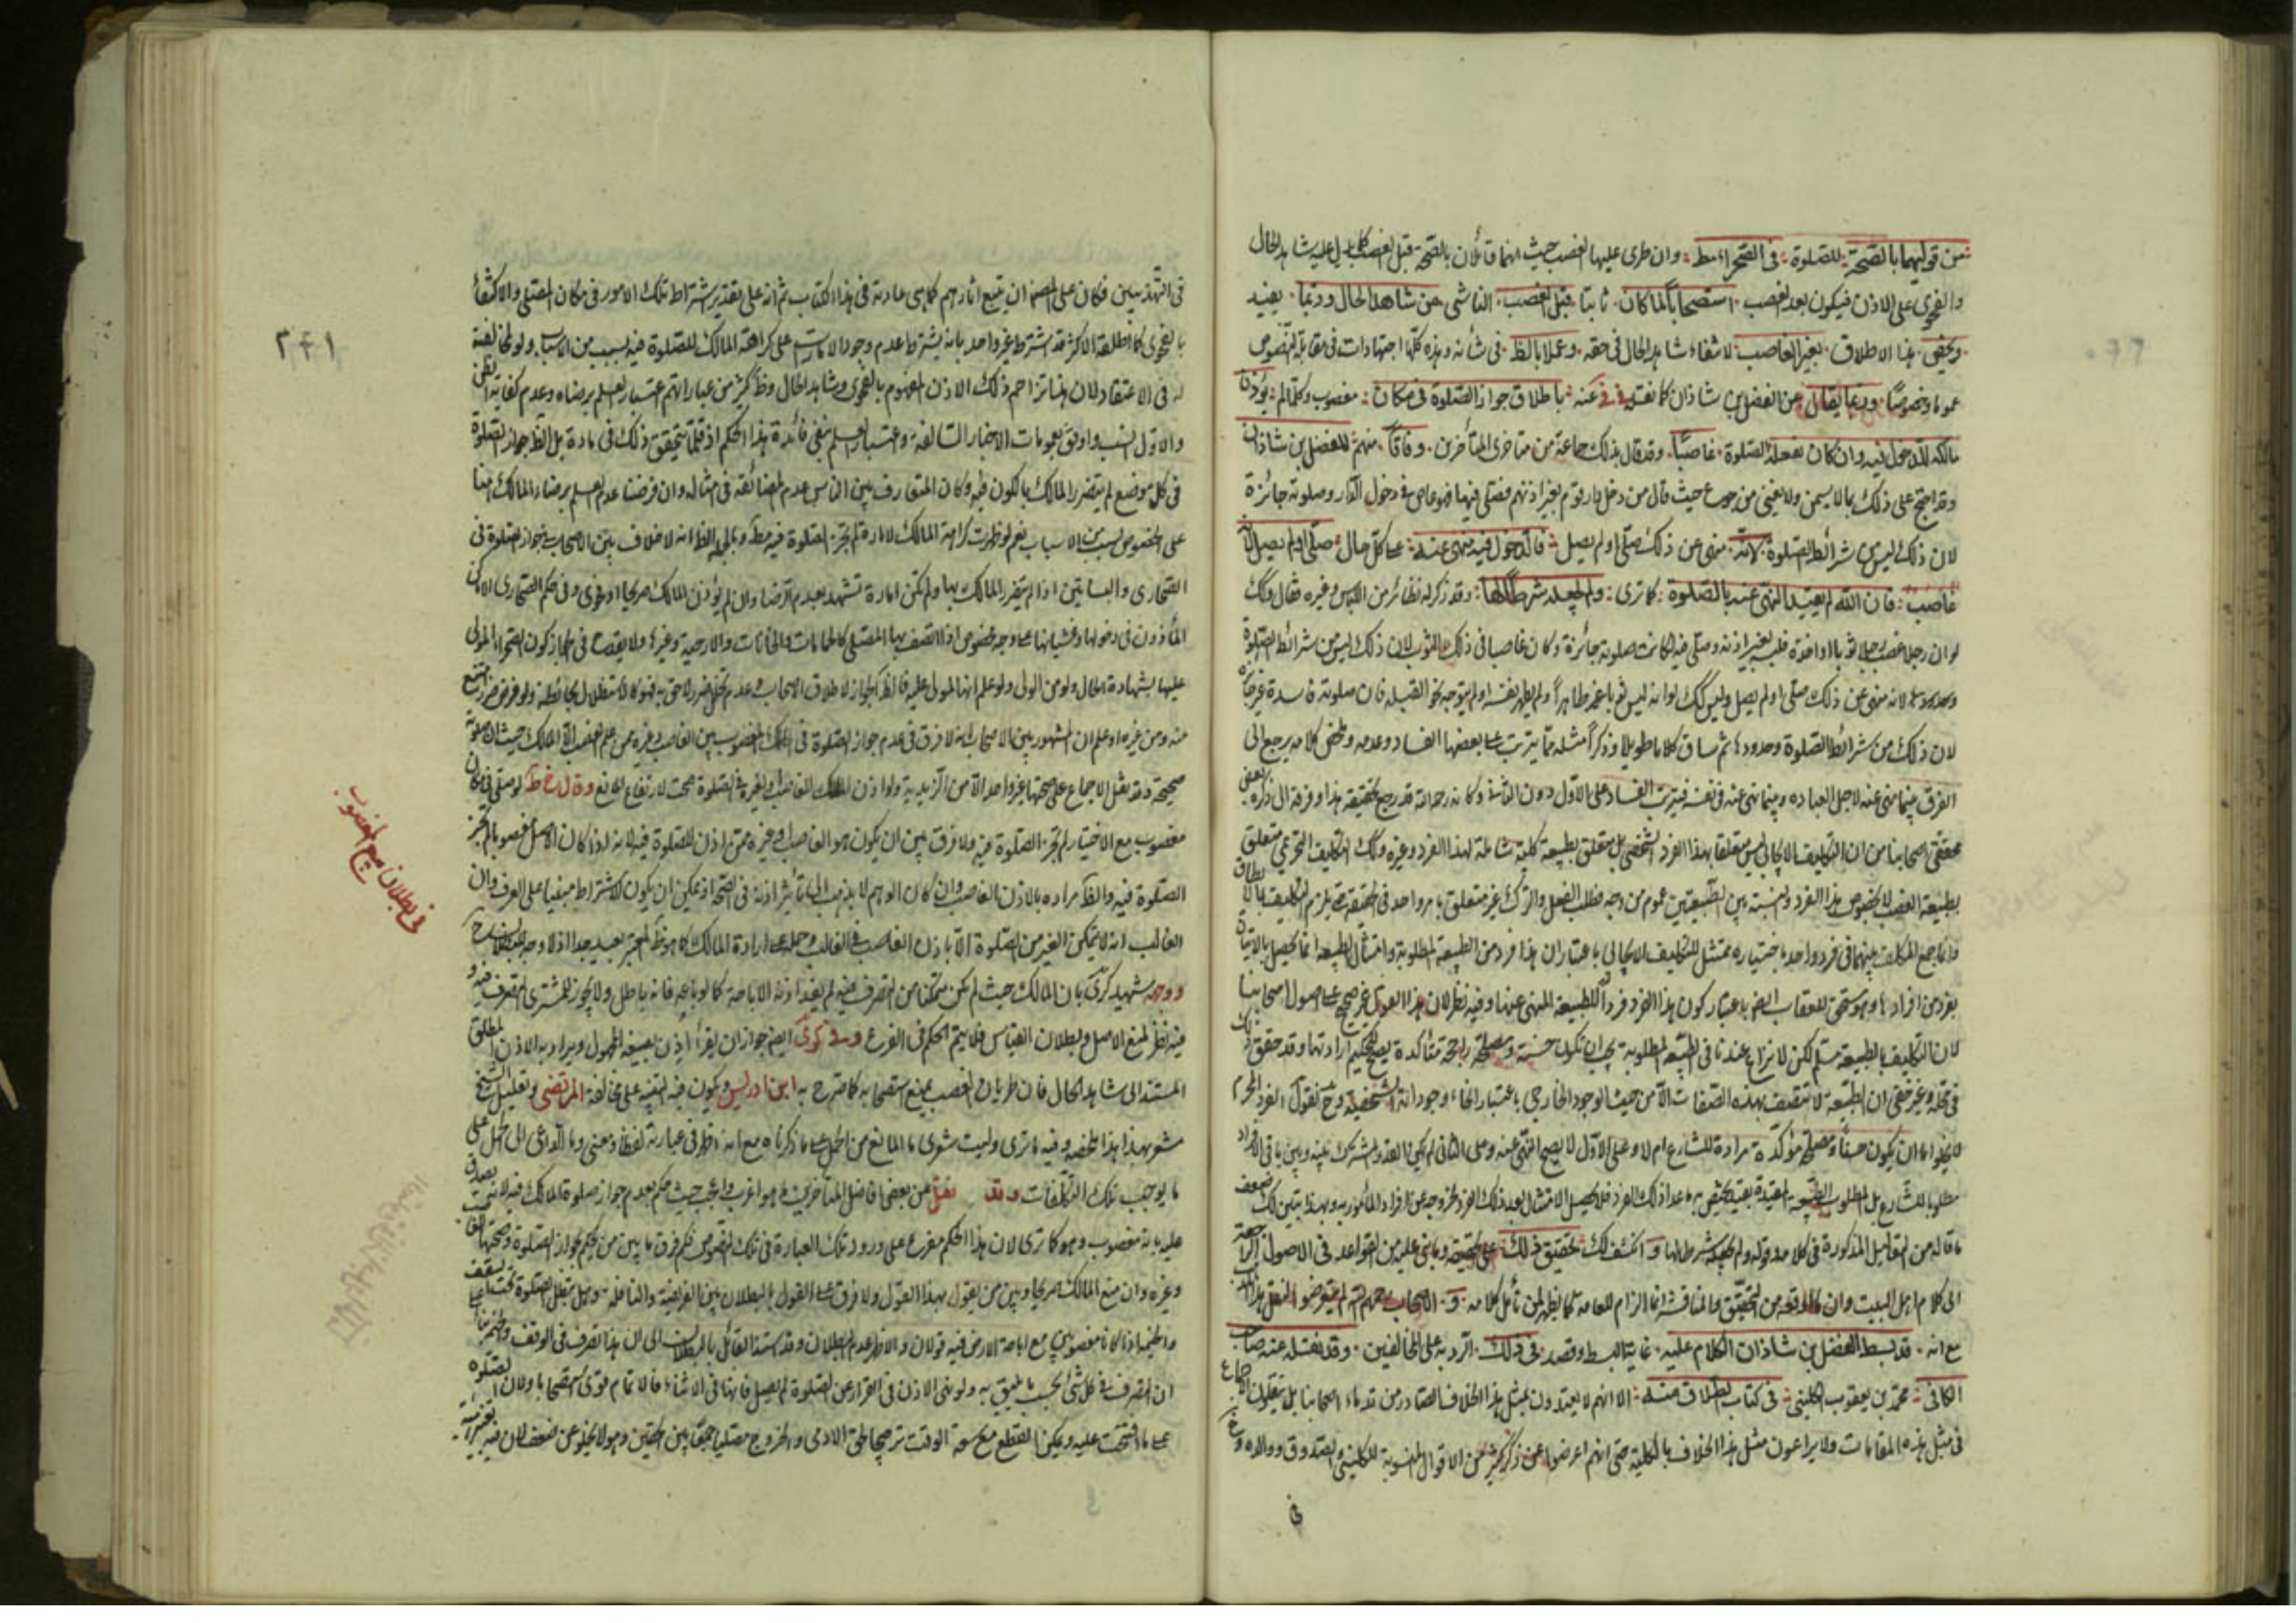 من قوليهما بالصحة للصلوة في الصحراء فقط وان طرى عليها الغصب حيث انهما قائلان بالصحة قبل الغصب شاهد الحال
والفحوى على الاذن فيكون بعد الغصب استصحابا لما كان ثابتا قبل الغصب الناشى من شاهد الحال وربما يفيد
ويختص هذا الاطلاق بغير الغاصب لانتفاء شاهد الحال في حقه وعملا بالظ في شانه وهذه كلها اجتهادات في مقابلة النصوص
عموما وخصوصا وربما يقال عن الفضل بن شاذان كما نقله عنه باطلاق جواز الصلوة في مكان مغصوب وكلما لم يؤذن
مالكه للدخول فيه وان كان بفعله الصلوة غاصبا وقد قال بذلك جماعة من متاخرى المتأخرين وفاقا منهم للفضل بن شاذان
وقد احتج على ذلك بما لا يسمن ولا يغنى من جوع حيث قال من دخل دار قوم بغير اذنهم فصلى فيها فهو عاص في دخول الدار وصلوته جائزة
لان ذلك ليس من شرائط الصلوة لانه منهى عن ذلك صلى او لم يصل فالدخول فيه منهى عنه على كل حال صلى او لم يصل لانه
غاصب فان الله لم يقيد المنهى عنه بالصلوة كما ترى ولم يجعله شرطا لها وقد ذكر له نظائر من اللباس وغيره فقال وكك
لو ان رجلا غصب رجلا ثوبا او اخذه فلبسه بغير اذنه وصلى فيه لكانت صلوته جائزة وكان غاصبا في ذلك الثوب لان ذلك ليس من شرائط الصلوة
لانه منهى عن ذلك صلى او لم يصل وليس كك لو انه ليس ثوبا غير طاهر او لم يطهر نفسه او لم يتوجه نحو القبلة فان صلوته فاسدة غير جائزة
لان ذلك من شرائط الصلوة وحدودها ثم ساق كلاما طويلا وذكر امثلة مما يترتب على بعضها الفساد وعدمه وملخص كلامه يرجع الى
الفرق بينما نهى عنه لاجل العبادة وبينما نهى عنه في نفسه فيترتب الفساد على الاول دون الثاني وكانه رحمه الله قد رجع تحقيقه هذا وفرقه الى ما ذكره بعض
محققى اصحابنا من ان التكليف الايجابى ليس متعلقا بهذا الفرد الشخصى بل متعلق بطبيعة كلية شاملة لهذا الفرد وغيره وكك التكليف التحريمى متعلق
بطبيعة الغصب لا بخصوص هذا الفرد والنسبة بين الطبيعتين عموم من وجه فطلب الفعل والترك غير متعلق بامر واحد في الحقيقة حتى يلزم التكليف بما لا يطاق
وانما جمع المكلف بينهما في فرد واحد باختياره ممتثل للتكليف الايجابى باعتبار ان هذا فرد من الطبيعة المطلوبة وامتثال الطبيعة انما يحصل بالاتيان
بفرد من افرادها وهو مستحق للعقاب ايضا باعتبار كون هذا الفرد فردا للطبيعة المنهى عنها وفيه نظر لان هذا القول غير صحيح على اصول اصحابنا
لان التكليف بالطبيعة مسلم لكن لا نزاع عندنا في ان الطبيعة المطلوبة يجب ان تكون حسنة ومصلحة راجحة متاكدة يصح للحكيم ارادتها وقد حقق ذلك
في محله وغير خفى ان الطبيعة لا تتصف بهذه الصفات الا من حيث الوجود الخارجى باعتبار انحاء وجوداته الشخصية وح نقول الفرد المحرم
لا يخلو اما ان يكون حسنا ومصلحة مؤكدة مرادة للشارع ام لا وعلى الاول لا يصح النهى عنه وعلى الثاني لم يكن القدر المشترك بينه وبين باقى الافراد
مطلوبا للشارع بل المطلوب الطبيعة المقيدة بقيد يختص به ما عدا ذلك الفرد فلا يحصل الامتثال بعد ذلك الفرد لخروجه عن افراد المأمور به وبهذا يتبين لك ضعف
ما قاله من التفاصيل المذكورة في كلامه وقوله ولم يجعله شرطا لها وانكشف لك تحقيق ذلك على الحقيقة وما بنى عليه من القواعد في الاصول الراجعة
الى كلام اهل البيت وان ما اوقعه من التحقيق والمناقشة انما الزام للعامة كما يظهر لمن تأمل كلامه و الاصحاب رحمهم الله لم يتعرضوا لنقل هذا
مع انه قد بسط الفضل بن شاذان الكلام عليه غاية البسط وقصد في ذلك الرد به على المخالفين وقد نقله عنه صاحب
الكافى محمد بن يعقوب الكلينى في كتاب الطلاق منه الا انهم لا يعتدون بمثل هذا الخلاف الصادر من قدماء اصحابنا بل ينقلون الاجماع
في مثل هذه المقامات ولا يراعون مثل هذا الخلاف بالكلية حتى انهم اعرضوا عن ذكر كثير من الاقوال المنسوبة للكلينى والصدوق ووالده
في
في التهذيبين فكان على المصنف ان يتبع اثارهم كما هي عادته في هذا الكتاب ثم انه على تقدير اشتراط تلك الامور في مكان المصلى والاكتفاء
بالفحوى كما اطلقه الاكثر قد اشترط غير واحد بانه يشترط عدم وجود الامارات على كراهة المالك للصلوة فيه بسبب من الاسباب ولو لمخالفته
له في الاعتقاد لان هنا تزاحم ذلك الاذن المفهوم بالفحوى وشاهد الحال وظ كثير من عباراتهم اعتبار العلم برضاه وعدم كفاية الظن
والاول انسب واوفق بعمومات الاخبار السالفة واعتبار العلم ينفى فائدة هذا الحكم اذ قلما يتحقق ذلك في مادة بل الظ جواز الصلوة
في كل موضع لم يتضرر المالك بالكون فيه وكان المتعارف بين الناس عدم المضائقة في امثاله وان فرضنا عدم العلم برضاء المالك هنا
على الخصوص بسبب من الاسباب نعم لو ظهرت كراهة المالك لامارة لم تجز الصلوة فيه مط وبالجملة الظ انه لا خلاف بين الاصحاب في جواز الصلوة في
الصحارى والبساتين اذا لم يتضرر المالك بها ولم تكن امارة تشهد بعدم الرضا وان لم يؤذن المالك صريحا او فحوى وفي حكم الصحارى الاماكن
المأذون في دخولها وغشيانها على وجه مخصوص اذا اتصف بها المصلى كالحمامات والخانات والارحية وغيرها ولا يقدح في الجواز كون الصحراء لمولى
عليها بشهادة الحال ولو من الولى ولو علم انها لمولى عليه فالظ الجواز لاطلاق الاصحاب وعدم تخيل ضرر لاحق به فهو كالاستظلال بحائطه ولو فرض ضرر امتنع
منه ومن غيره واعلم ان المشهور بين الاصحاب انه لا فرق في عدم جواز الصلوة في الملك المغصوب بين الغاصب وغيره ممن علم الغصب الا المالك حيث ان صلوته
صحيحة وقد نقل الاجماع على صحتها غير واحد الا من الزيدية ولو اذن المالك للغاصب او لغيره في الصلوة صحت لارتفاع المانع وقال في ط لو صلى في مكان
مغصوب مع الاختيار لم تجز الصلوة فيه ولا فرق بين ان يكون هو الغاصب او غيره ممن اذن له في الصلوة فيه لانه اذا كان الاصل مغصوبا لم تجز
الصلوة فيه والظ مراده بالاذن الغاصب وان كان الوهم لا يذهب الى تأثير اذنه في الصحة اذ يمكن ان يكون الاشتراط مبنيا على العرف وان
الغالب انه لا يتمكن الغير من الصلوة الا باذن الغاصب في الغالب وحمله على ارادة المالك كما هو ظ المعتبر بعيد جدا اذ لا وجه
ووجهه الشهيد في كرى بان المالك حيث لم يكن متمكنا من التصرف فيه لم يفد اذنه الاباحة كما لو باعه فانه باطل ولا يجوز للمشترى التصرف فيه و
فيه نظر لمنع الاصل وبطلان القياس فلا يتم الحكم في الفرع وفي كرى ايضا جواز ان يقرأ اذن بصيغة المجهول ويراد به الاذن المطلق
المستند الى شاهد الحال فان طريان الغصب يمنع استصحابه كما صرح به ابن ادريس ويكون فيه التنبيه على مخالفة المرتضى وتعليل الشيخ
مشعر بهذا هذا ملخصه وفيه ما ترى وليت شعرى ما المانع من الحمل على ما ذكرناه مع انه اظهر في عبارته لفظا ومعنى وما الداعى الى الحمل على
ما يوجب تلك التكلفات وقد نقل عن بعض افاضل المتأخرين ما هو اغرب واعجب حيث حكم بعدم جواز صلوة المالك فيه لانه يصدق
عليه بانه مغصوب وهو كما ترى لان هذا الحكم متفرع على ورود تلك العبارة في تلك النصوص فكم فرق ما بين من يحكم بجواز الصلوة وصحتها
وغيره وان منع المالك صريحا وبين من يقول بهذا القول ولا فرق على القول بالبطلان بين الفريضة والنافلة وهل تبطل الصلوة تحت السقف
والخيمة اذا كانا مغصوبين مع اباحة الارض فيه قولان والاظهر عدم البطلان وقد استند القائل بالبطلان الى ان هذا تصرف في الوقف والخيمة
ان التصرف في كل شئ بحسب ما يليق به ولو نهى الاذن في القرار عن الصلوة لم يصل فانها في الاثناء فالاتمام قوى استصحابا ولان الصلوة
على ما افتتحت عليه ويمكن القطع مع سعة الوقت ترجيحا لحق الادمى والخروج مصليا جمعا بين الحقين وهو لا يخلو عن ضعف لان فيه
في بطلان بيع المغصوب
٢٤١